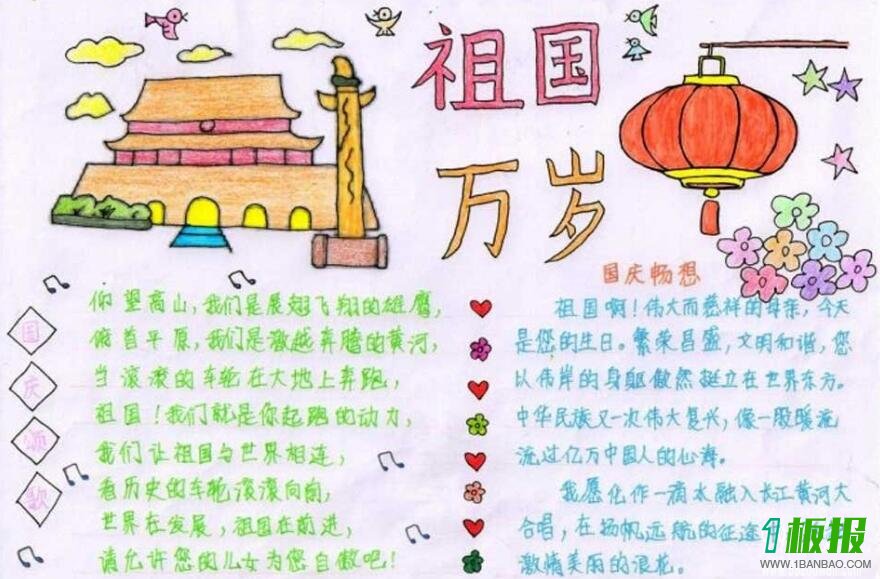 祖国
万岁
国庆颂歌
仰望高山,我们是展翅飞翔的雄鹰,
俯首平原,我们是激越奔腾的黄河,
当滚滚的车轮在大地上奔跑,
祖国!我们就是你起跑的动力,
我们让祖国与世界相连,
看历史的车轮滚滚向前,
世界在发展,祖国在前进,
请允许您的儿女为您自傲吧!
国庆畅想
祖国啊!伟大而慈祥的母亲,今天
是您的生日。繁荣昌盛,文明和谐,您
以伟岸的身躯傲然挺立在世界东方。
中华民族又一次伟大复兴,像一股暖流
流过亿万中国人的心海。
我愿化作一滴水融入长江黄河大
合唱,在扬帆远航的征途
激情美丽的浪花。
1板报
WWW.1BANBAO.COM